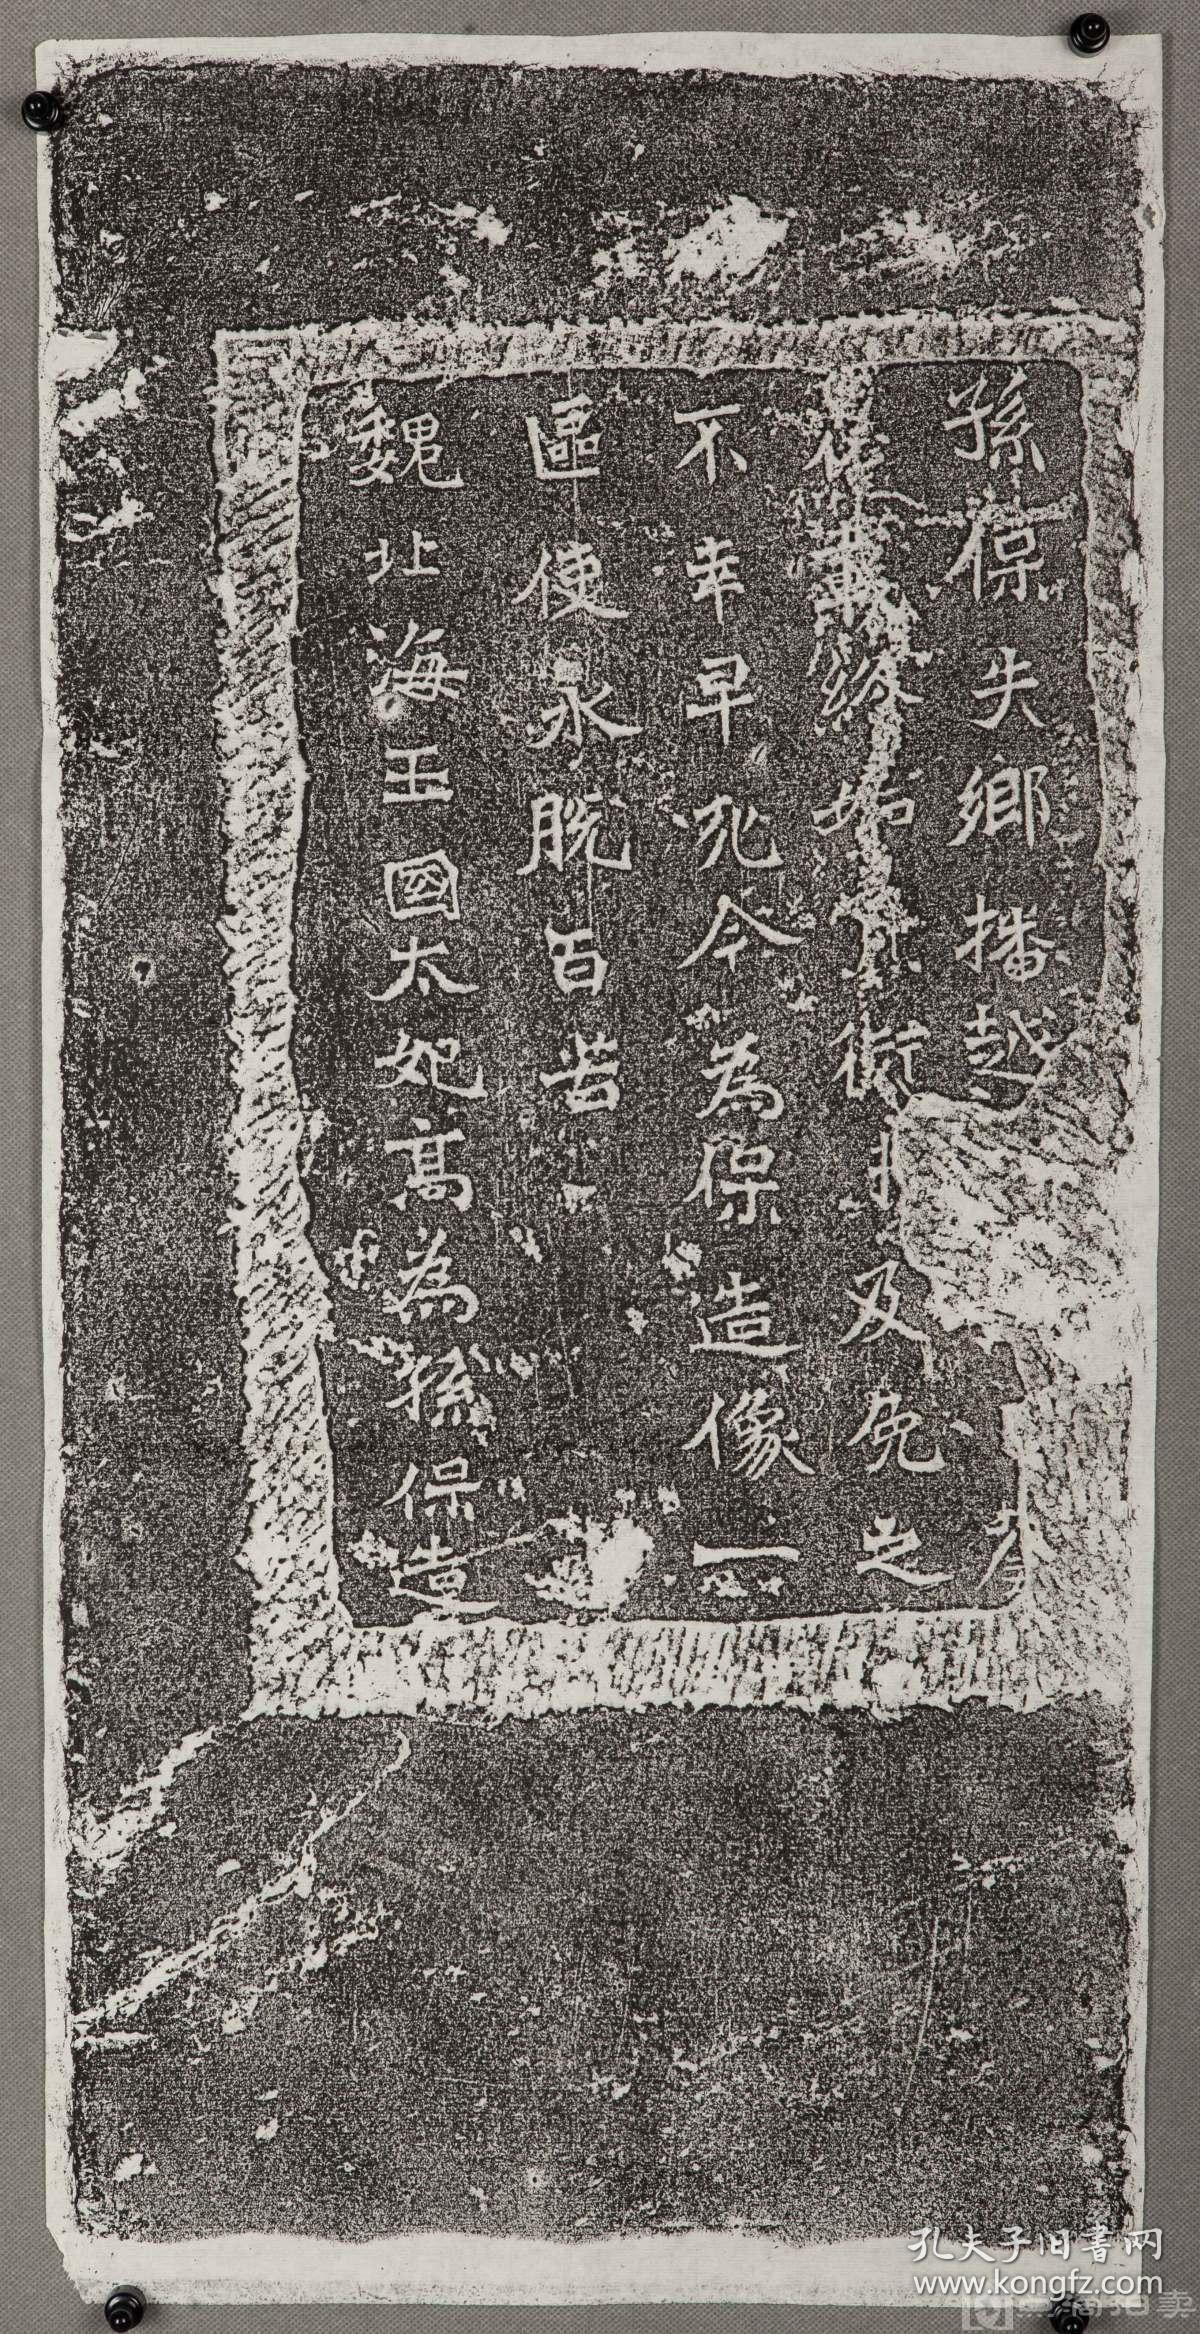 孫保失鄉播越
終始冥衔 及免之
不幸早死今為保造像一
區使永脱百苦
魏北海王國太妃高為孫保造
孔夫子旧书网
www.kongfz.com